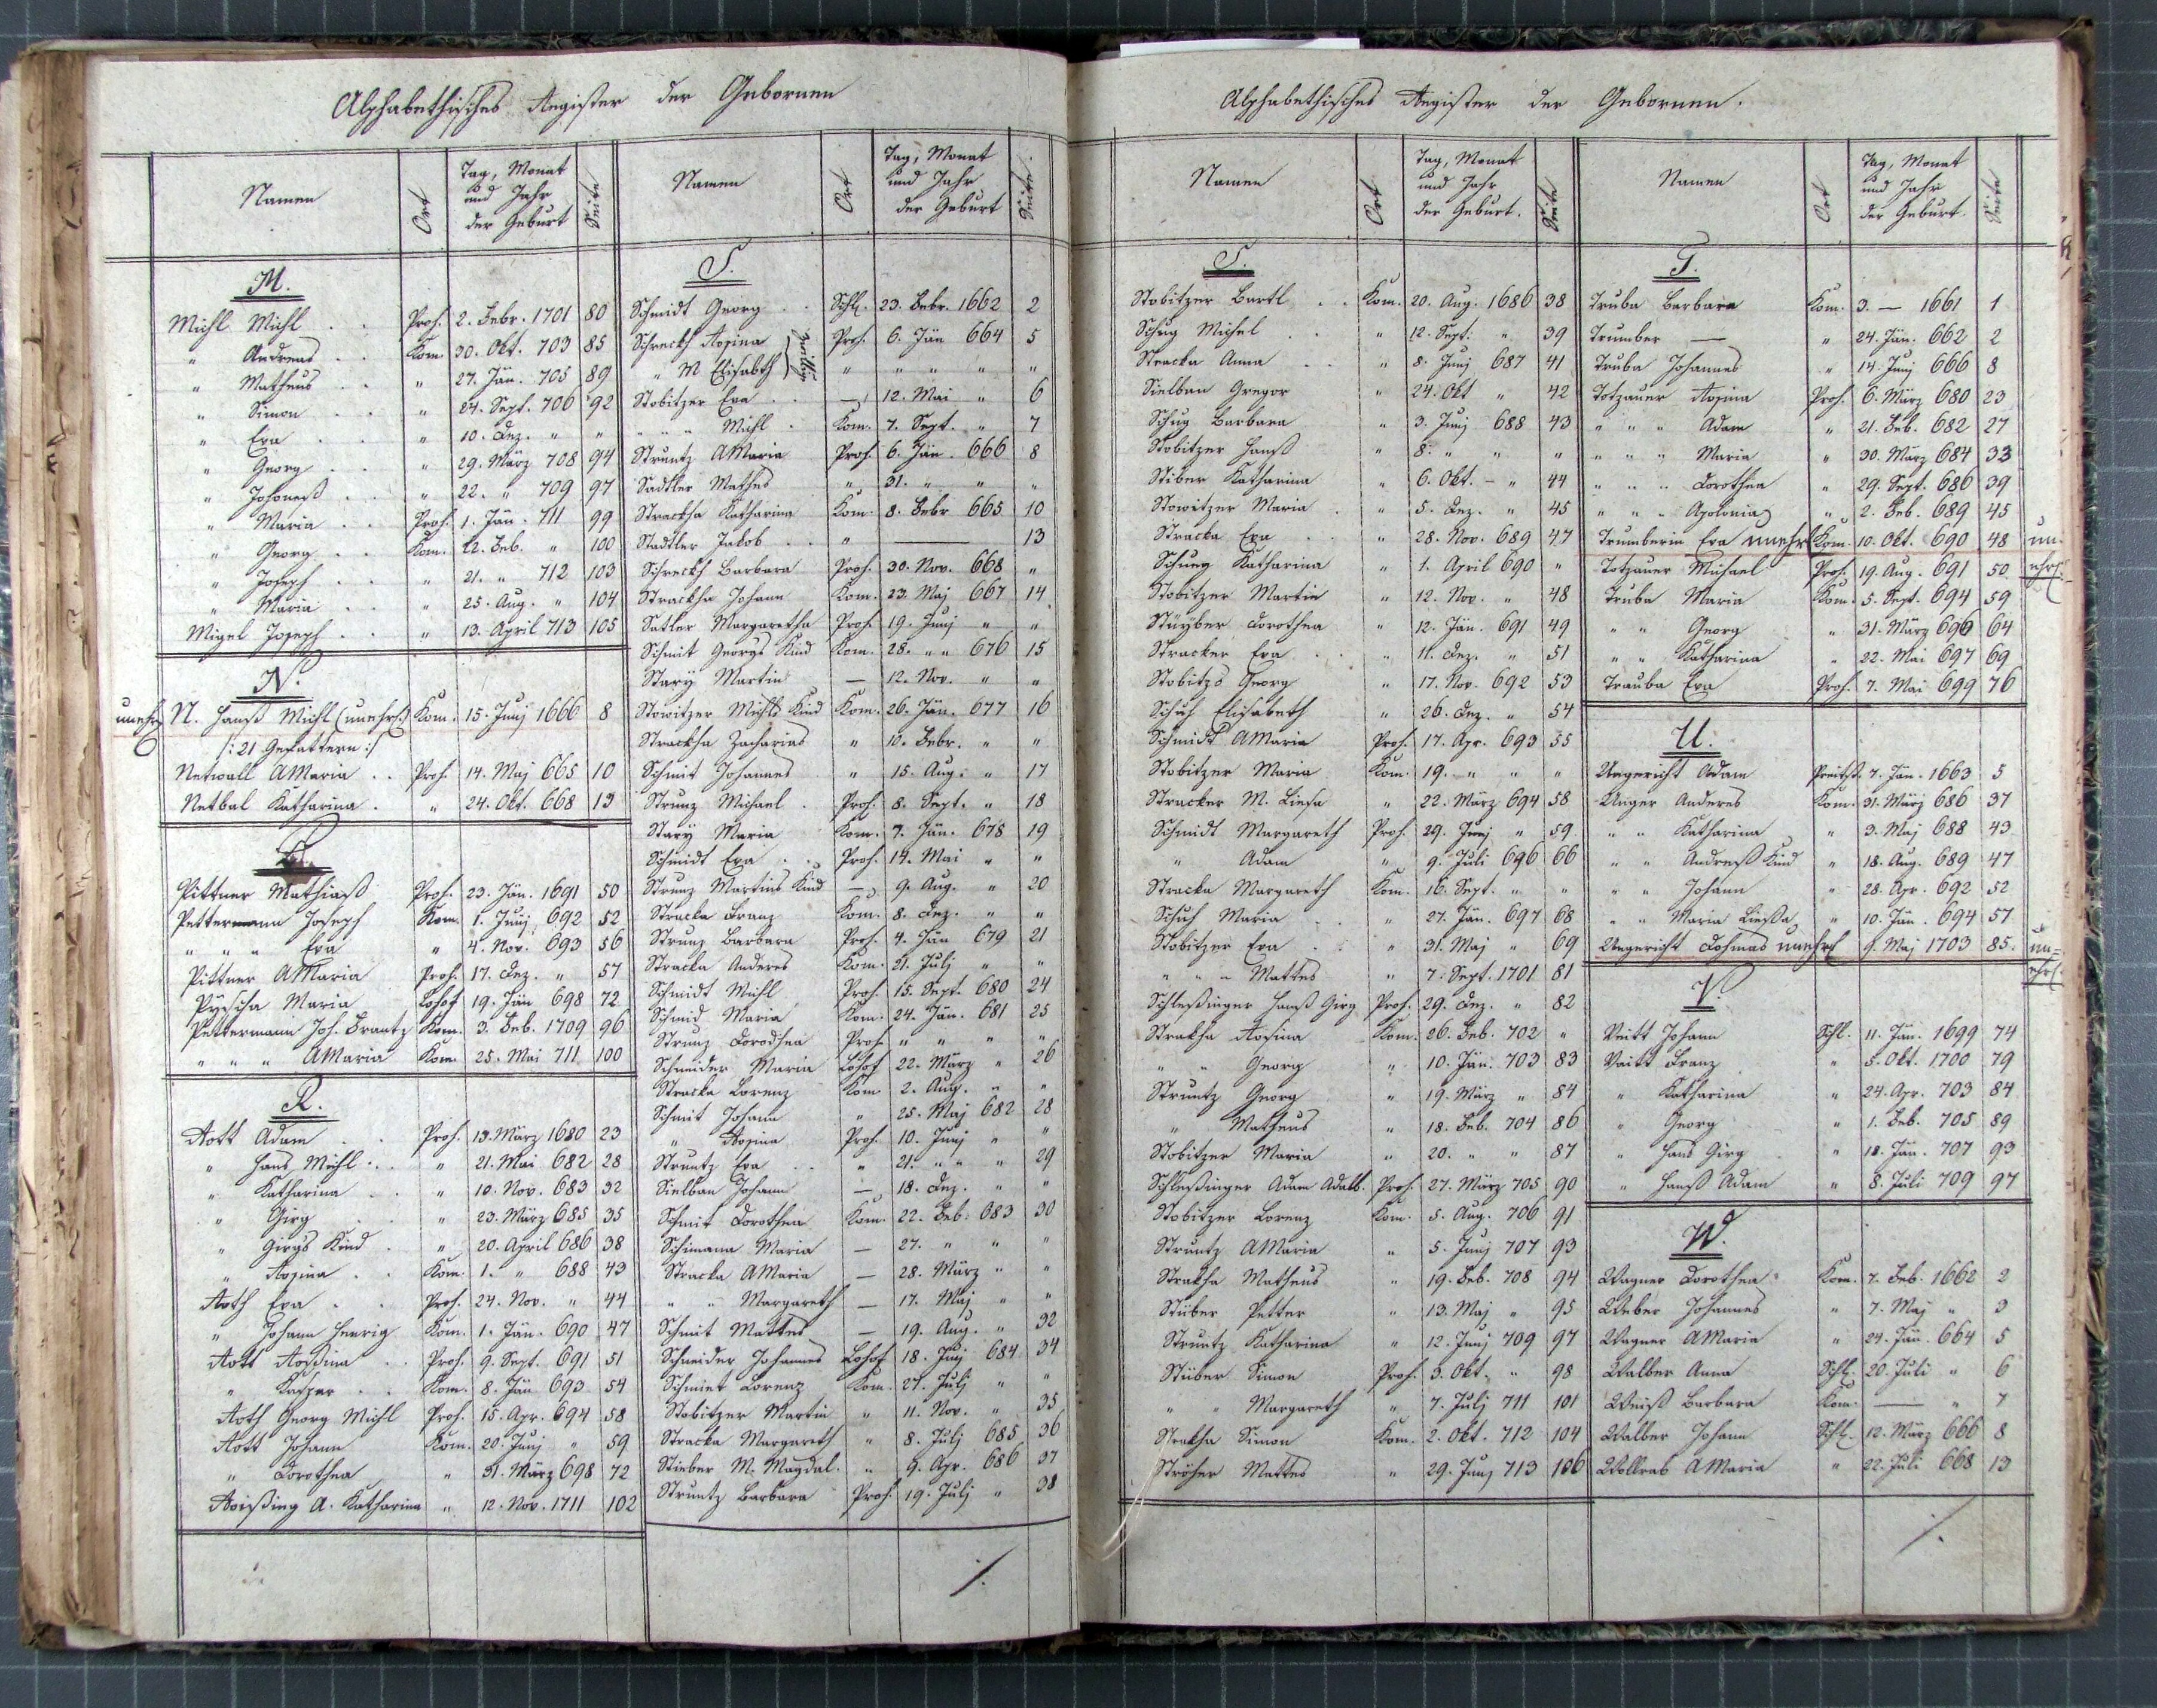 Alphabethisches Register der Gebornen
Namen Ort Tag, Monat und Jahr der Geburt Seite
M.
Michl Michl . . Proh. 2. Febr. 1701 80
" Andreas . . Kom. 30. Okt. 703 85
" Matheus . . " 27. Jän. 705 89
" Simon . . " 24. Sept. 706 92
" Eva . . " 10. Dez. " "
" Georg . . " 29. März 708 94
" Johaneß . . " 22. " 709 97
" Maria . . Proh. 1. Jän. 711 99
" Georg . . Kom. 22. Feb. " 100
" Joseph . . " 21. " 712 103
" Maria . . " 25. Aug. " 104
Migel Joseph . . " 13. April 713 105
N.
unehrl N. Hanß Michl (unehrl.) Kom. 15. Junj 1666 8
/: 21 Gefattern :/
Netwall AMaria . . Proh. 14. Maj 665 10
Netbal Katharina . " 24. Okt. 668 13
Pittner Mathiaß Proh. 23. Jän. 1691 50
Pettermann Joseph Kom. 1. Junj 692 52
" " " Eva " 4. Nov. 693 56
Pittner AMaria Proh. 17. Dez. " 57
Maria Lohof 19. Jän 698 72
Pettermann Joh. Frantz Kom. 3. Feb. 1709 96
" " " AMaria Kom. 25. Mai 711 100
R.
Rott Adam . . Proh. 13. März 1680 23
" Hans Michl . . " 21. Mai 682 28
" Katharina . . " 10. Nov. 683 32
" Girg " 23. März 685 35
" Girgs Kind . " 20. April 686 38
" Rosina . . Kom. 1. " 688 43
Roth Eva . . Proh. 24. Nov. " 44
" Johann Henrig Kom. 1. Jän. 690 47
Rott Roßina . . Proh. 9. Sept. 691 51
" Kasper . . Kom. 8. Jän 693 54
Roth Georg Michl Proh. 15. Apr. 694 58
Rott Johann Kom. 20. Junj " 59
" Dorothea " 31. März 698 72
Roißing A. Katharina " 12. Nov. 1711 102
Namen Ort Tag, Monat und Jahr der Geburt Seite
S.
Schmidt Georg . . Schl. 23. Febr. 1662 2
Schreckh Rosina Proh. 6. Jän 664 5
" M Elisabth " " " " "
Stobitzer Eva . . — 12. Mai " 6
" " " Michl . Kom. 7. Sept. " 7
Struntz AMaria Proh. 6. Jän. 666 8
Sadtler Mathes " 31. " " "
Strackha Katharina Kom. 8. Febr 665 10
Stadtler Jakob . . " — 13
Schreckh Barbara Proh. 30. Nov. 668 "
Strackha Johann Kom. 23. Maj 667 14
Satler Margaretha Proh. 19. Junj " "
Schmit Georgs Kind Kom. 28. " " 676 15
Stary Martin — 12. Nov. " "
Stowitzer Michls Kind Kom. 26. Jän. 677 16
Strackha Zacharias " 10. Febr. " "
Schmit Johannes " 15. Aug. " 17
Strunz Michael . Proh. 8. Sept. " 18
Stary Maria Kom. 7. Jän. 678 19
Schmidt Eva . . Proh. 14. Mai " "
Strunz Martins Kind — 9. Aug. " 20
Stracka Franz Kom. 8. Dez. " "
Strunz Barbara Proh. 4. Jän 679 21
Stracka Anderes Kom. 21. Julj " "
Schmidt Michl Proh. 15. Sept. 680 24
Schmid Maria Kom. 24. Jän. 681 25
Strunz Dorodhea Proh. " " " "
Schneider Maria Lohof 22. März " 26
Stracka Lorenz Kom. 2. Aug. " "
Schmit Johann " 25. Maj 682 28
" Rosina Proh. 10. Junj " "
Struntz Eva . . " 21. " " " 29
Sielban Johann — 18. Dez. " "
Schmit Dorothea Kom. 22. Feb. 683 30
Schimana Maria — 27. " " "
Stracka AMaria — 28. März " "
" " Margareth — 17. Maj " "
Schmit Mattes — 19. Aug. " 32
Schneider Johannes Lohof 18. Junj 684 34
Schmiet Lorenz Kom. 27. Julj " "
Stobitzer Martin " 11. Nov. " 35
Stracka Margareth " 8. Julj 685 36
Stieber M. Magdal. " 9. Apr. 686 37
Struntz Barbara Proh. 19. Julj " 38
Alphabethisches Register der Gebornen.
Namen Ort Tag, Monat und Jahr der Geburt. Seite
S.
Stobitzer Bartl . . Kom. 20. Aug. 1686 38
Schug Michel . " 12. Sept. " 39
Stracka Anna . . " 8. Junj 687 41
Sielban Gregor " 24. Okt " 42
Schug Barbara " 3. Junj 688 43
Stobitzer Hanß " 8. " " "
Stiber Katharina " 6. Okt. - " 44
Stowitzer Maria . " 5. Dez. " 45
Stracka Eva . . " 28. Nov. 689 47
Schueg Katharina " 1. April 690 "
Stobitzer Martin " 12. Nov. " 48
Stüyber Dorothea " 12. Jän. 691 49
Stracker Eva . . " 11. Dez. " 51
Stobitzs Georg " 17. Nov. 692 53
Schuh Elisabeth " 26. Dez. " 54
Schmidt AMaria Proh. 17. Apr. 693 55
Stobitzer Maria Kom. 19. " " "
Stracker M. Liesa " 22. März 694 58
Schmidt Margareth Proh. 29. Junj " 59
" Adam " 9. Juli 696 66
Stracka Margareth Kom. 16. Sept. " "
Schuh Maria . . " 27. Jän. 697 68
Stobitzer Eva . . " 31. Maj " 69
" " " Mattes " 7. Sept. 1701 81
Schleßinger Hanß Girg Proh. 29. Dez. " 82
Strakha Rosina Kom. 26. Feb. 702 "
" " Georg " 10. Jän. 703 83
Struntz Georg " 19. März " 84
" Matheus " 18. Feb. 704 86
Stobitzer Maria " 20. " " 87
Schleßinger Adam Adalb. Proh. 27. März 705 90
Stobitzer Lorenz Kom. 5. Aug. 706 91
Struntz AMaria " 5. Junj 707 93
Strakha Matheus " 19. Feb. 708 94
Stüber Petter " 13. Maj " 95
Struntz Katharina " 12. Junj 709 97
Stüber Simon Proh. 3. Okt. " 98
" " Margareth " 7. Julj 711 101
Strakha Simon Kom. 2. Okt. 712 104
Ströher Mattes " 29. Junj 713 106
Namen Ort Tag, Monat und Jahr der Geburt. Seite
T.
Truba Barbara Kom. 3. — 1661 1
Trumber — " 24. Jän. 662 2
Truba Johannes " 14. Junj 666 8
Totzauer Rosina Proh. 6. März 680 23
" " " Adam " 21. Feb. 682 27
" " " Maria " 30. März 684 33
" " " Dorothea " 29. Sept. 686 39
" " " Apolonia " 2. Feb. 689 45
Trumberin Eva unehrl Kom. 10. Okt. 690 48 un-
Totzauer Michael Proh. 19. Aug. 691 50 ehrl.
Truba Maria Kom. 5. Sept. 694 59
" " Georg " 31. März 696 64
" " Katharina " 22. Mai 697 69
Trauba Eva Proh. 7. Mai 699 76
U.
Ungericht Adam 7. Jän. 1663 5
Unger Anderes Kom. 31. März 686 37
" " Katharina " 3. Maj 688 43
" " Andreß Kind " 18. Aug. 689 47
" " Johann " 28. Apr. 692 52
" " Maria Ließa " 10. Jän. 694 57
Ungericht unehrl 9. Maj 1703 85. un-
ehrl.
V.
Veitt Johann Schl. 11. Jän. 1699 74
Vaitt Franz " 5. Okt. 1700 79
" Katharina " 24. Apr. 703 84
" Georg " 1. Feb. 705 89
" Hans Girg " 18. Jän. 707 93
" Hanß Adam " 8. Juli 709 97
W.
Wagner Dorothea Kom. 7. Feb. 1662 2
Weber Johannes " 7. Maj " 3
Wagner AMaria " 24. Jän. 664 5
Walber Anna Schl. 20. Juli " 6
Weiß Barbara Kom. — " 7
Walber Johann Schl. 12. März 666 8
Wollrab AMaria " 22. Juli 668 13